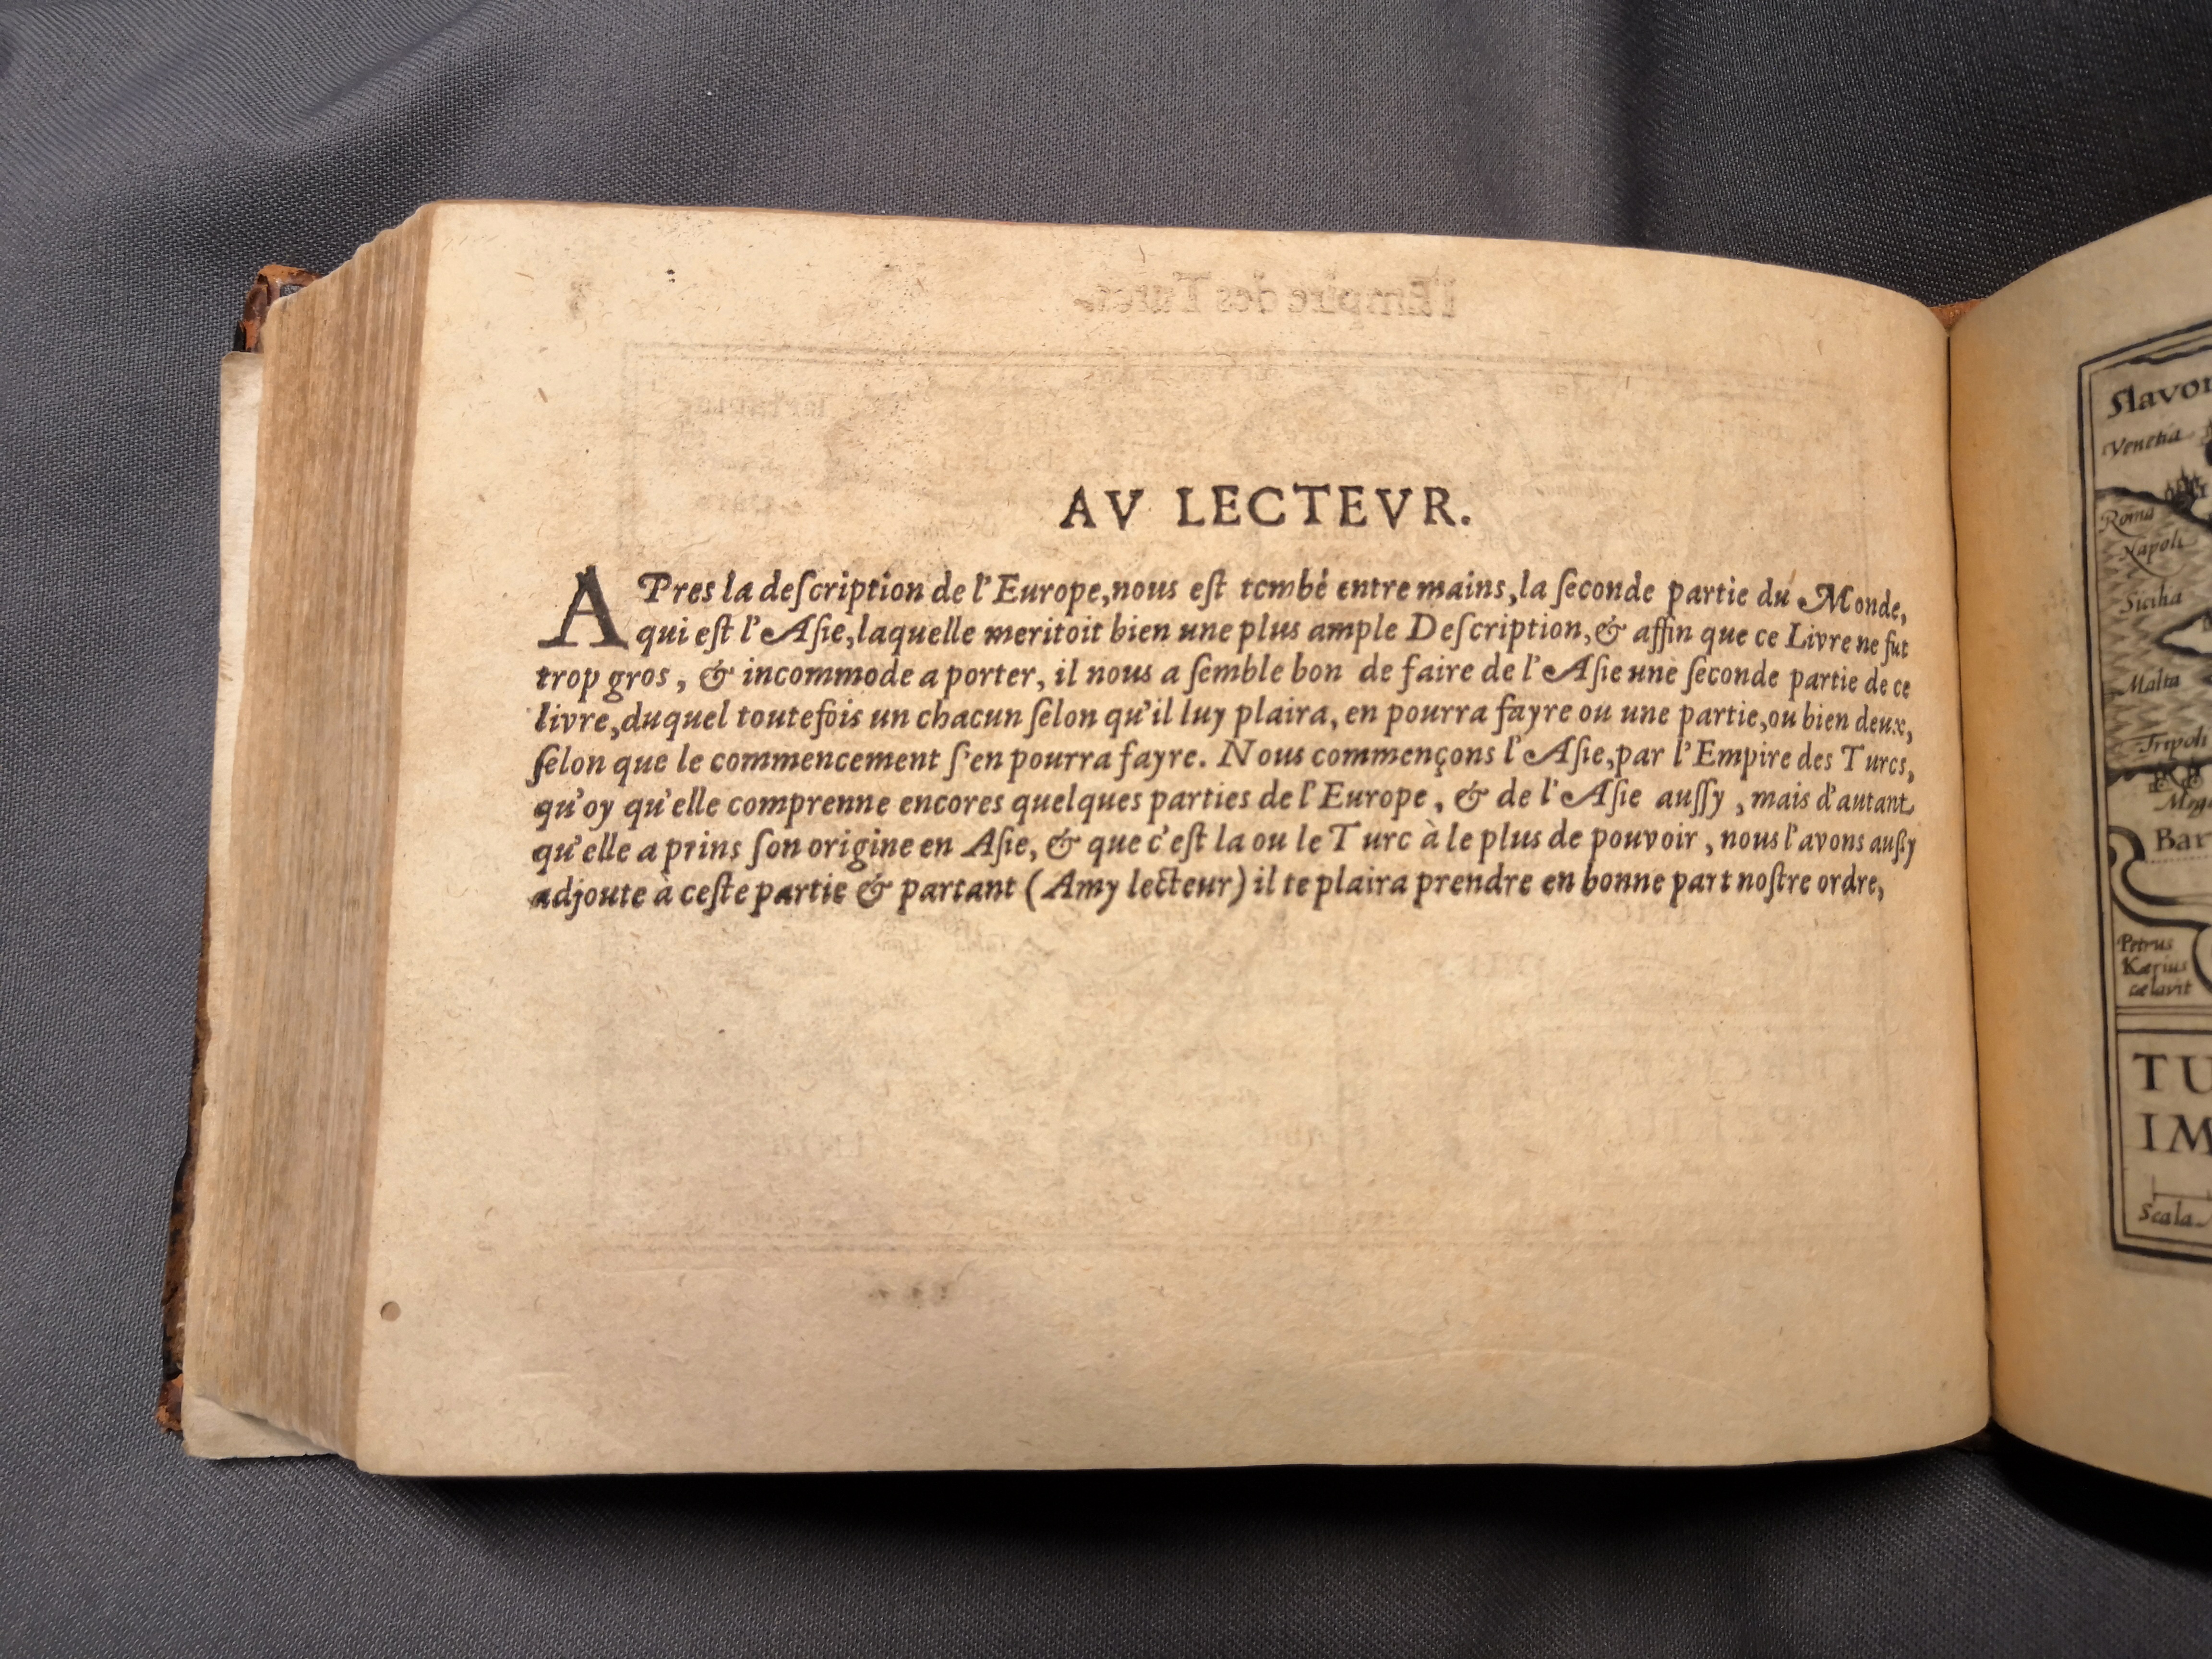 l'Empire des Turcs.
AV LECTEVR.
APres la deſcription de l'Europe, nous eſt tombé entre mains, la ſeconde partie du Monde,
qui eſt l'Aſie, laquelle meritoit bien une plus ample Deſcription, & affin que ce Livre ne fut
trop gros, & incommode a porter, il nous a ſemble bon de faire de l'Aſie une ſeconde partie de ce
livre, duquel toutefois un chacun ſelon qu'il luy plaira, en pourra fayre ou une partie, ou bien deux,
ſelon que le commencement ſ'en pourra fayre. Nous commençons l'Aſie, par l'Empire des Turcs,
qu'oy qu'elle comprenne encores quelques parties de l'Europe, & de l'Aſie auſſy, mais d'autant
qu'elle a prins ſon origine en Aſie, & que c'eſt la ou le Turc à le plus de pouvoir, nous l'avons auſſy
adjoute à ceſte partie & partant (Amy lecteur) il te plaira prendre en bonne part noſtre ordre,
Slavon
Venetia
Roma
Napoli
Sicilia
Malta
Tripoli
Bar
Petrus
Kærius
cælavit
TU
IM
Scala